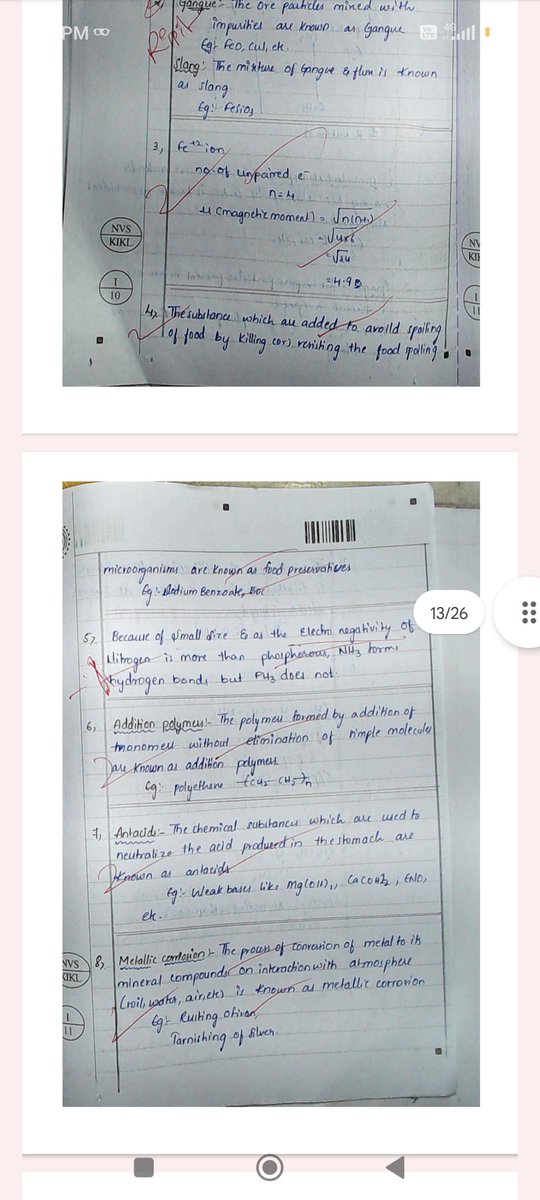 Gangue:- The ore particles mined with
PM
Vo LTE 4G
impurities are known as Gangue
Eg:- FeO, CuS, etc.
Slang:- The mixture of Gangue & flux is known
as slang
Eg:- FeSiO3
3, Fe+2 ion
no. of unpaired e-
n=4
μ (magnetic moment) = √n(n+2)
= √4x6
= √24
= 4.90
NVS
KIKL
I
10
4, The substance which are added to avoild spoiling
of food by killing (or) resisting the food spoiling
microorganisms are known as food preservatives
Eg:- Sodium Benzoate,
13/26
5, Because of small size & as the Electro negativity of
Nitrogen is more than phosphorous, NH3 forms
hydrogen bonds but PH3 does not.
6, Addition polymers:- The polymers formed by addition of
monomers without elimination of simple molecules
are known as addition polymers
Eg:- polyethene -(CH2-CH2)n
7, Antacids:- The chemical substances which are used to
neutralize the acid produced in the stomach are
known as antacids
Eg:- Weak bases like Mg(OH)2, Ca(OH)2, ENO,
etc.
NVS
KIKL
8, Metallic corrosion:- The process of conversion of metal to its
mineral compounds on interaction with atmosphere
(soil, water, air etc) is known as metallic corrosion
I
11
Eg:- Rusting of iron,
Tarnishing of silver.